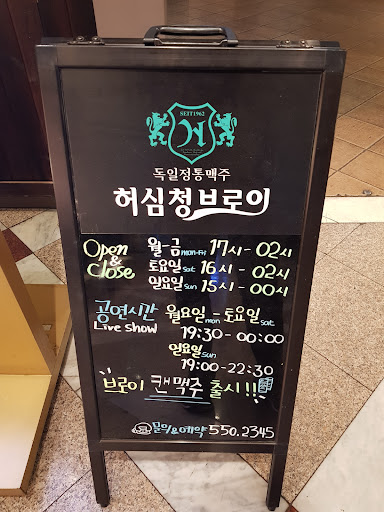 SEIT1962
독일정통맥주
허심청브로이
Open & Close
월-금 mon-Fri 17시-02시
토요일 sat 16시-02시
일요일 sun 15시-00시
공연시간 Live show
월요일 mon - 토요일 sat
19:30-00:00
일요일 sun
19:00-22:30
브로이 캔맥주 출시!!
문의&예약 550.2345